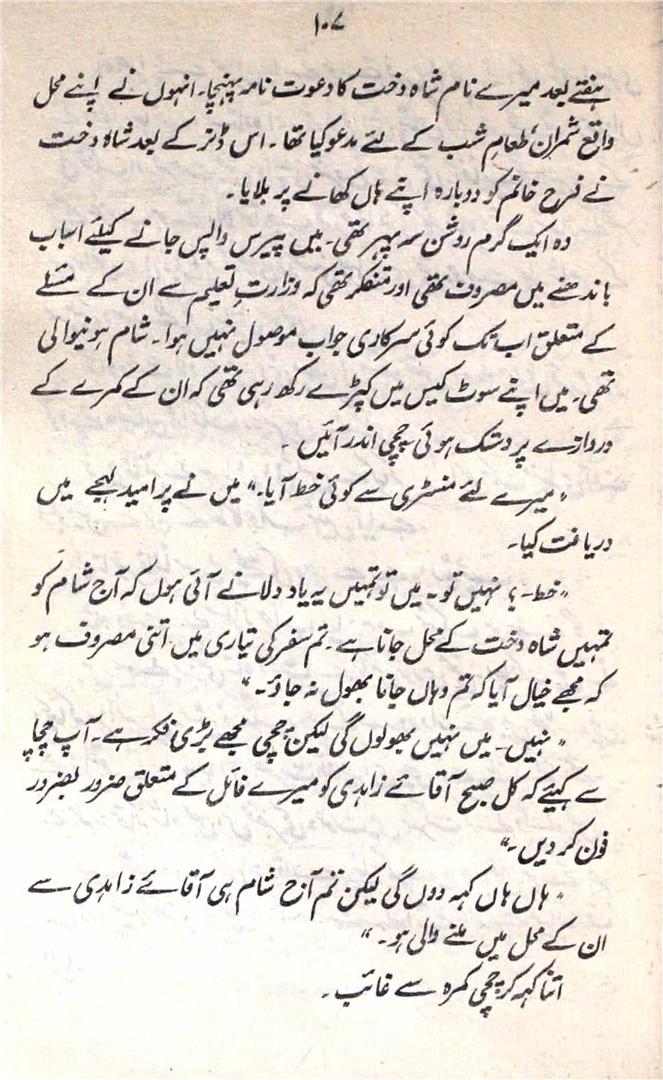 ۱۰۷
ہفتے بعد میرے نام شاہ دخت کا دعوت نامہ پہنچا۔ انہوں نے اپنے محل
واقع شمران طعام شب کے لئے مدعو کیا تھا۔ اس ڈنر کے بعد شاہ دخت
نے فرح خانم کو دوبارہ اپنے ہاں کھانے پر بلایا۔
وہ ایک گرم روشن سہ پہر تھی۔ میں پیرس واپس جانے کیلئے اسباب
باندھنے میں مصروف تھی اور متفکر تھی کہ وزارت تعلیم سے ان کے مسئلے
کے متعلق اب تک کوئی سرکاری جواب موصول نہیں ہوا۔ شام ہونیوالی
تھی۔ میں اپنے سوٹ کیس میں کپڑے رکھ رہی تھی کہ ان کے کمرے کے
دروازے پر دستک ہوئی چچی اندر آئیں۔
"میرے لئے منسٹری سے کوئی خط آیا۔" میں نے پرامید لہجے میں
دریافت کیا۔
"خط۔؟ نہیں تو۔ میں تو تمہیں یہ یاد دلانے آئی ہوں کہ آج شام کو
تمہیں شاہ دخت کے محل جانا ہے۔ تم سفر کی تیاری میں اتنی مصروف ہو
کہ مجھے خیال آیا کہ تم وہاں جانا بھول نہ جاؤ۔"
"نہیں۔ میں نہیں بھولوں گی لیکن چچی مجھے بڑی فکر ہے۔ آپ چچا
سے کہیئے کہ کل صبح آقائے زاہدی کو میرے فائل کے متعلق ضرور بضرور
فون کر دیں۔"
"ہاں ہاں کہہ دوں گی لیکن تم آج شام ہی آقائے زاہدی سے
ان کے محل میں ملنے والی ہو۔"
اتنا کہہ کر چچی کمرہ سے غائب۔